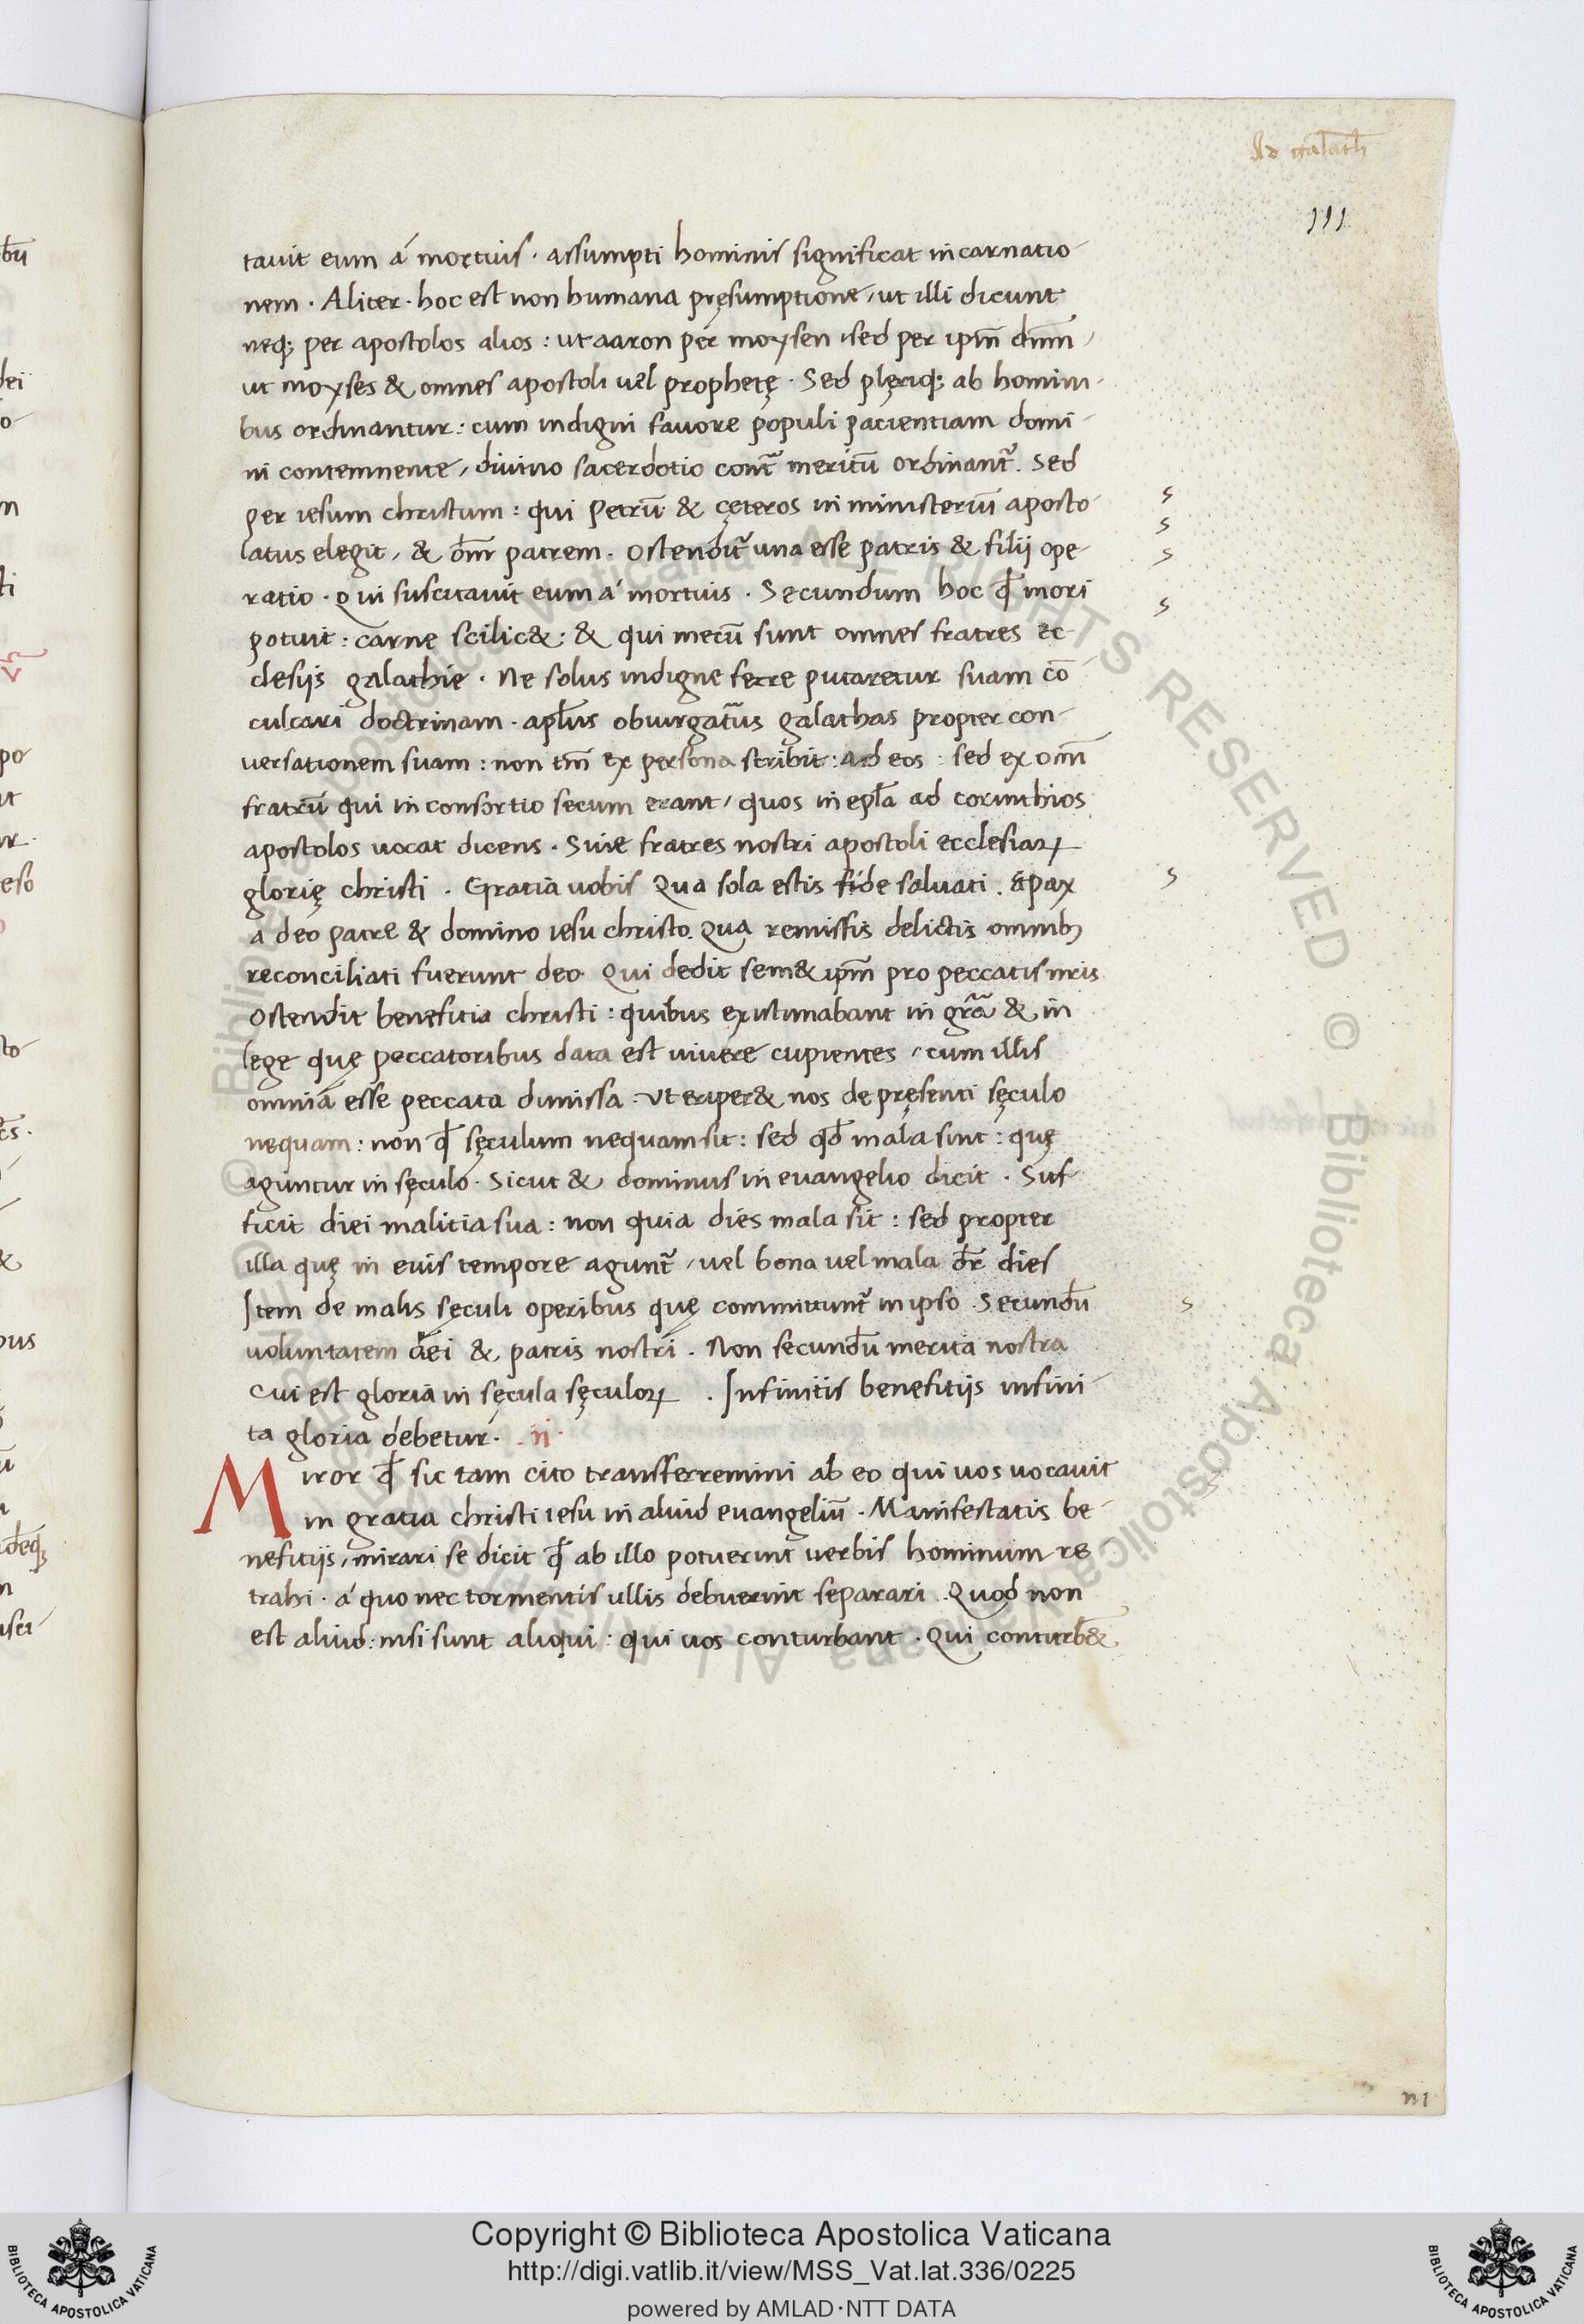 Ad galath
111
tavit eum á mortuis · assumpti hominis significat incarnatio-
nem · Aliter · hoc est non humana pręsumptione, ut illi dicunt
neq; per apostolos alios : ut aaron per moysen , sed per ipm̄ dnm̄,
ut moyses & omnes apostoli uel prophetę · Sed plęriq; ab homini-
bus ordinantur : cum indigni favore populi pacientiam domi-
ni contemnente, divino sacerdotio cont̄ meritū ordinant̄. Sed
per iesum christum : qui Petrū & cęteros in ministeriū aposto-
latus elegit, & dm̄ patrem · Ostendit̄ una esse patris & filij ope-
ratio · Qui suscitavit eum á mortuis · Secundum hoc qd̄ mori
potuit : carne scilic& : & qui mecū sunt omnes fratres ec-
clesijs galathię · Ne solus indigne ferre putaretur suam cō
culcari doctrinam · apl̄us obiurgat̄us galathas propter con-
versationem suam : non tm̄ ex persona scribit : ad eos : sed ex om̄
fratrū qui in consortio secum erant, quos in epl̄a ad corinthios
apostolos uocat dicens · Sive fratres nostri apostoli ecclesiaꝝ
glorię christi · Gratia uobis Qua sola estis fide saluati . & pax
a deo patre & domino iesu christo. Qua remissis delictis omnib;
reconciliati fuerunt deo Qui dedit sem& ipm̄ pro peccatis nr̄is
Ostendit benefitia christi : quibus existimabant in grā & in
lege quę peccatoribus data est vivere cupientes, cum illis
omnia esse peccata dimissa : Ut eriper& nos de pręsenti sęculo
nequam : non qd̄ sęculum nequam sit : sed qd̄ mala sint : quę
aguntur in sęculo · Sicut & dominus in evangelio dicit · Suf-
ficit diei malitia sua : non quia dies mala sit : sed propter
illa quę in euis tempore agunt̄, vel bona vel mala dr̄ dies
Item de malis sęculi operibus quę committunt̄ in ipso . Secundū
voluntatem dei & patris nostri . Non secundū merita nostra
Cui est gloria in sęcula sęculoꝝ . Infinitis benefitijs infini-
ta gloria debetur · ii ·
Miror qd̄ sic tam cito transferremini ab eo qui uos uocavit
in gratia christi iesu in aliud evangeliū · Manifestatis be-
nefitijs, mirari se dicit qd̄ ab illo potuerint verbis hominum re
trahi · á quo nec tormentis ullis debuerint separari . Quod non
est aliud : nisi sunt aliqui : qui uos conturbant · Qui conturb&
n1
Copyright © Biblioteca Apostolica Vaticana
http://digi.vatlib.it/view/MSS_Vat.lat.336/0225
powered by AMLAD·NTT DATA
BIBLIOTECA APOSTOLICA VATICANA
BIBLIOTECA APOSTOLICA VATICANA